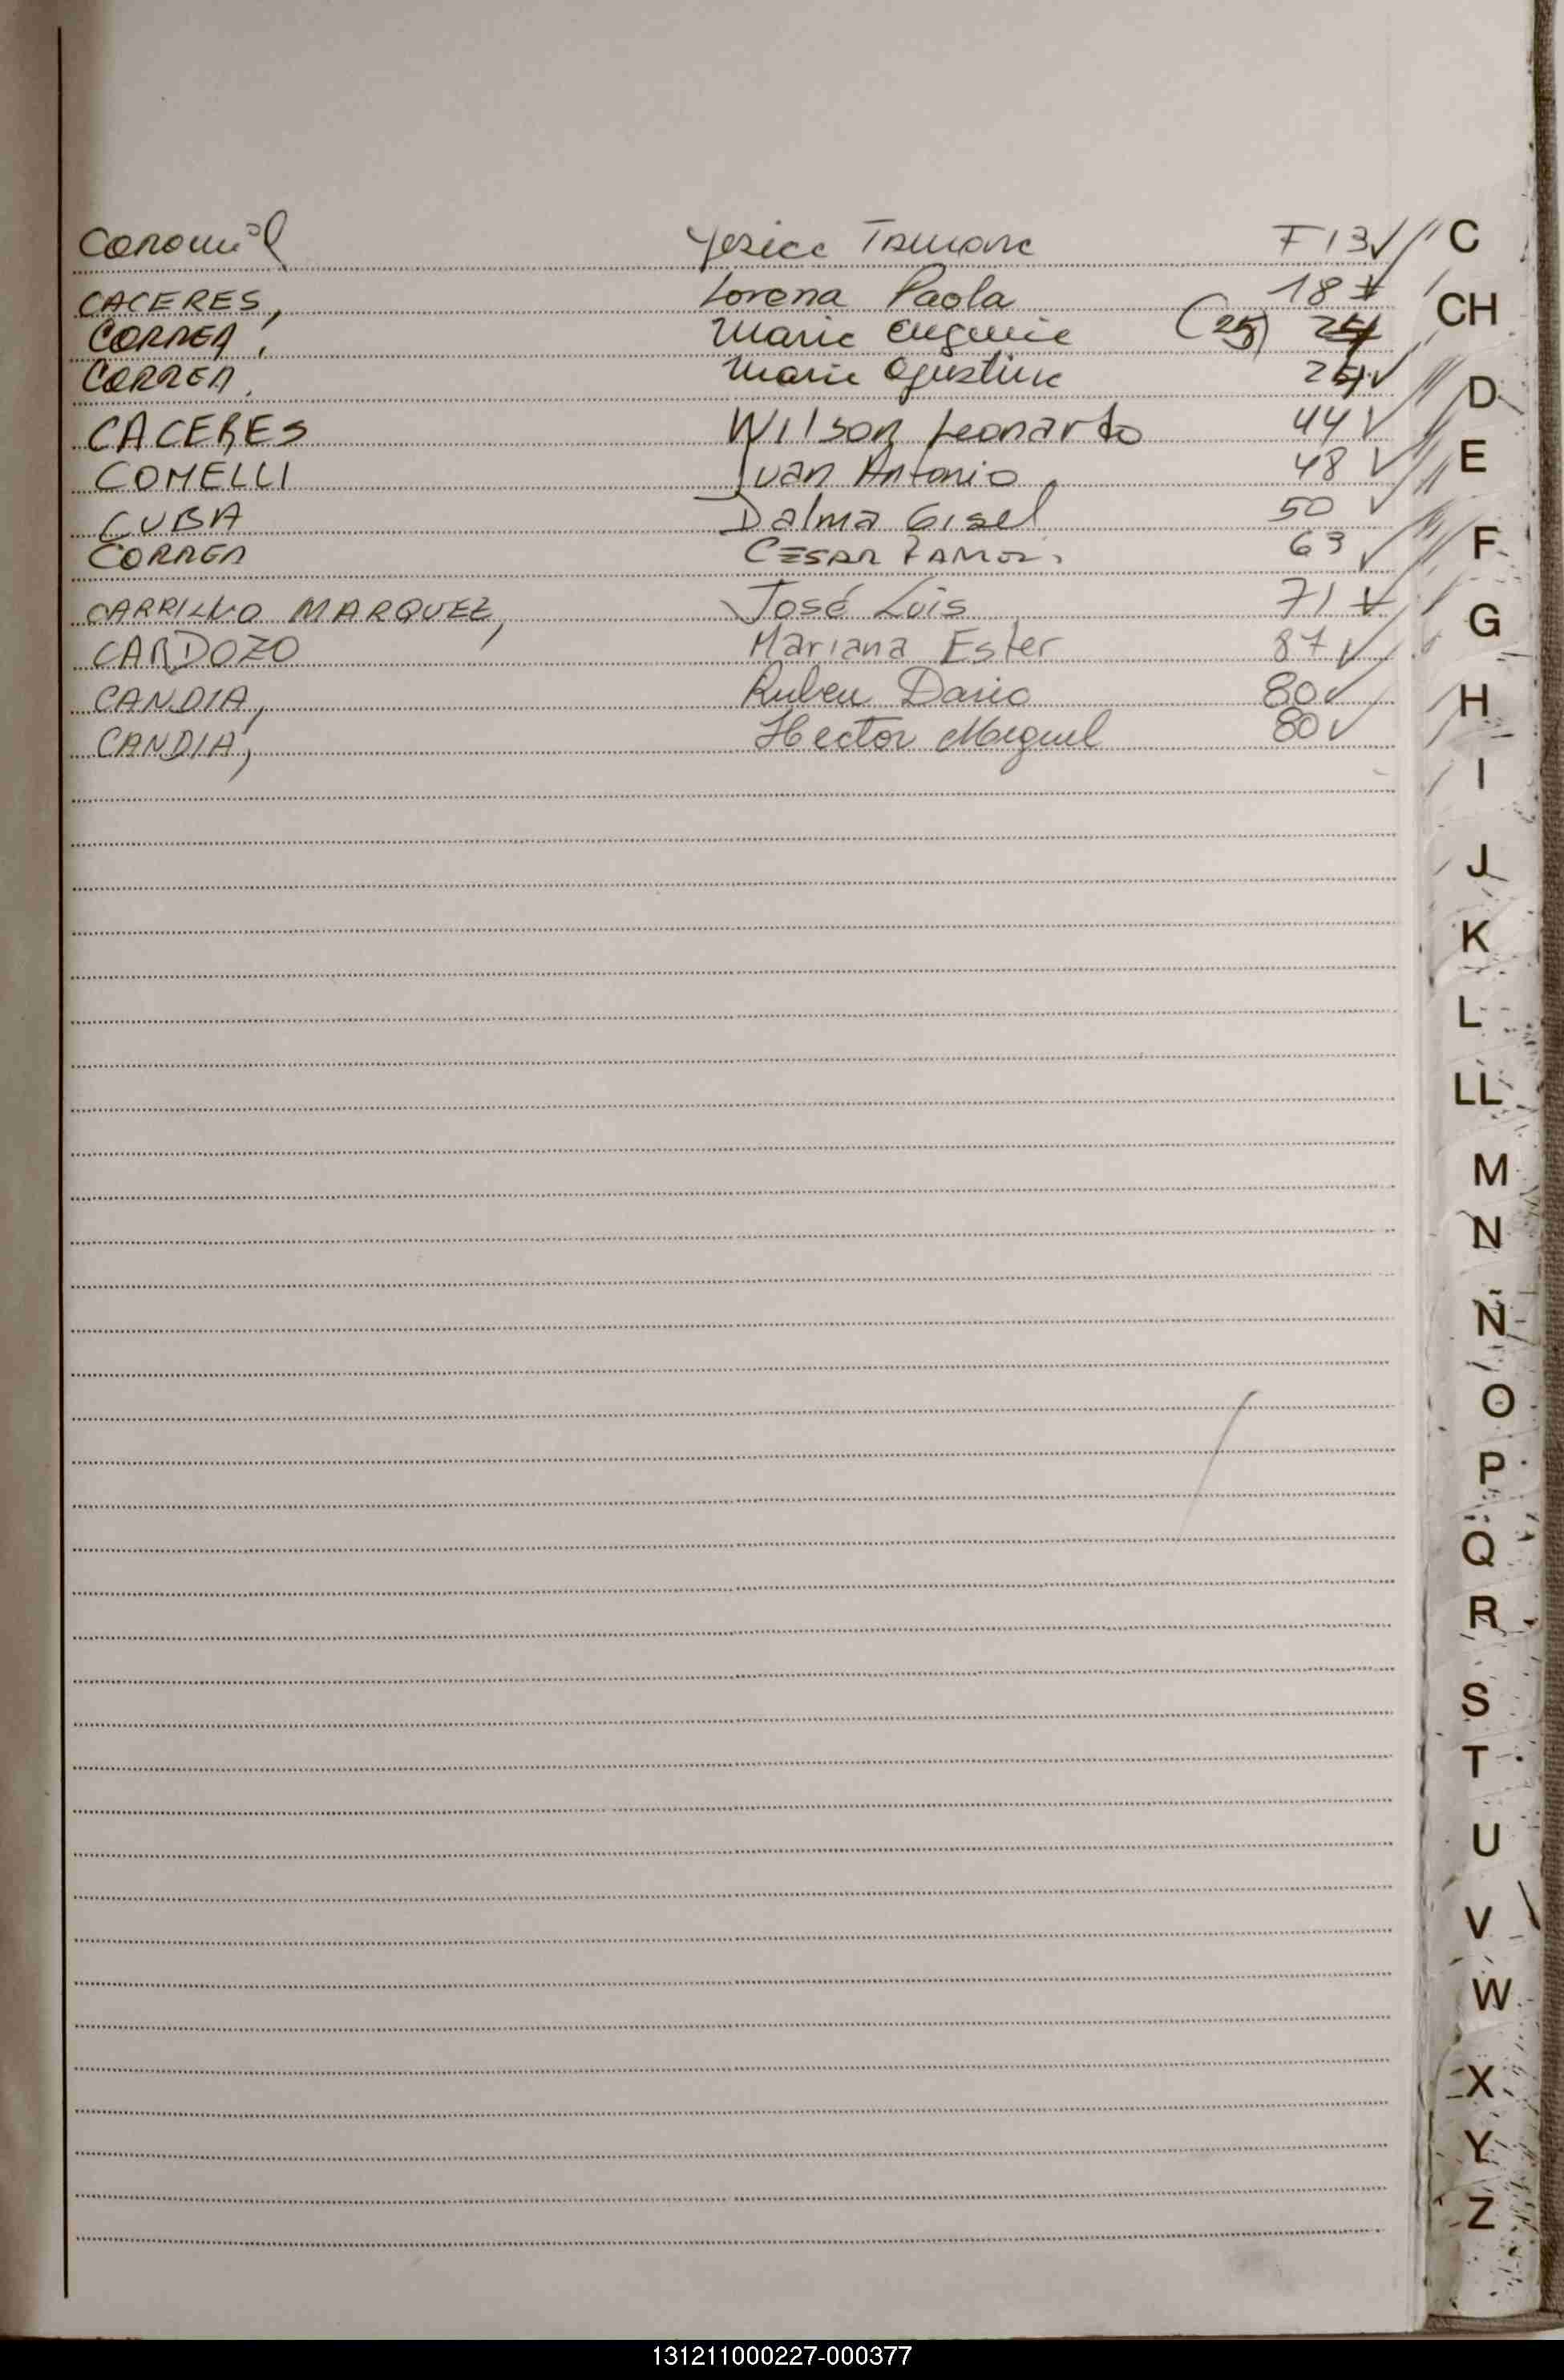 Caromil Yesica Tamara F 13 ✓
CACERES, Lorena Paola 18 ✓
CORREA, Maria Eugenia (25)
CORREA, Maria Agustina ✓
CACERES Wilson Leonardo 44 ✓
COMELLI Juan Antonio 48 ✓
CUBA Dalma Gisel 50 ✓
CORREA CESAR RAMON 63 ✓
CARRILLO MARQUEZ, José Luis 71 ✓
CARDOZO Mariana Ester 87 ✓
CANDIA, Ruben Dario 80 ✓
CANDIA, Hector Miguel 80 ✓
C
CH
D
E
F
G
H
I
J
K
L
LL
M
N
Ñ
O
P
Q
R
S
T
U
V
W
X
Y
Z
131211000227-000377